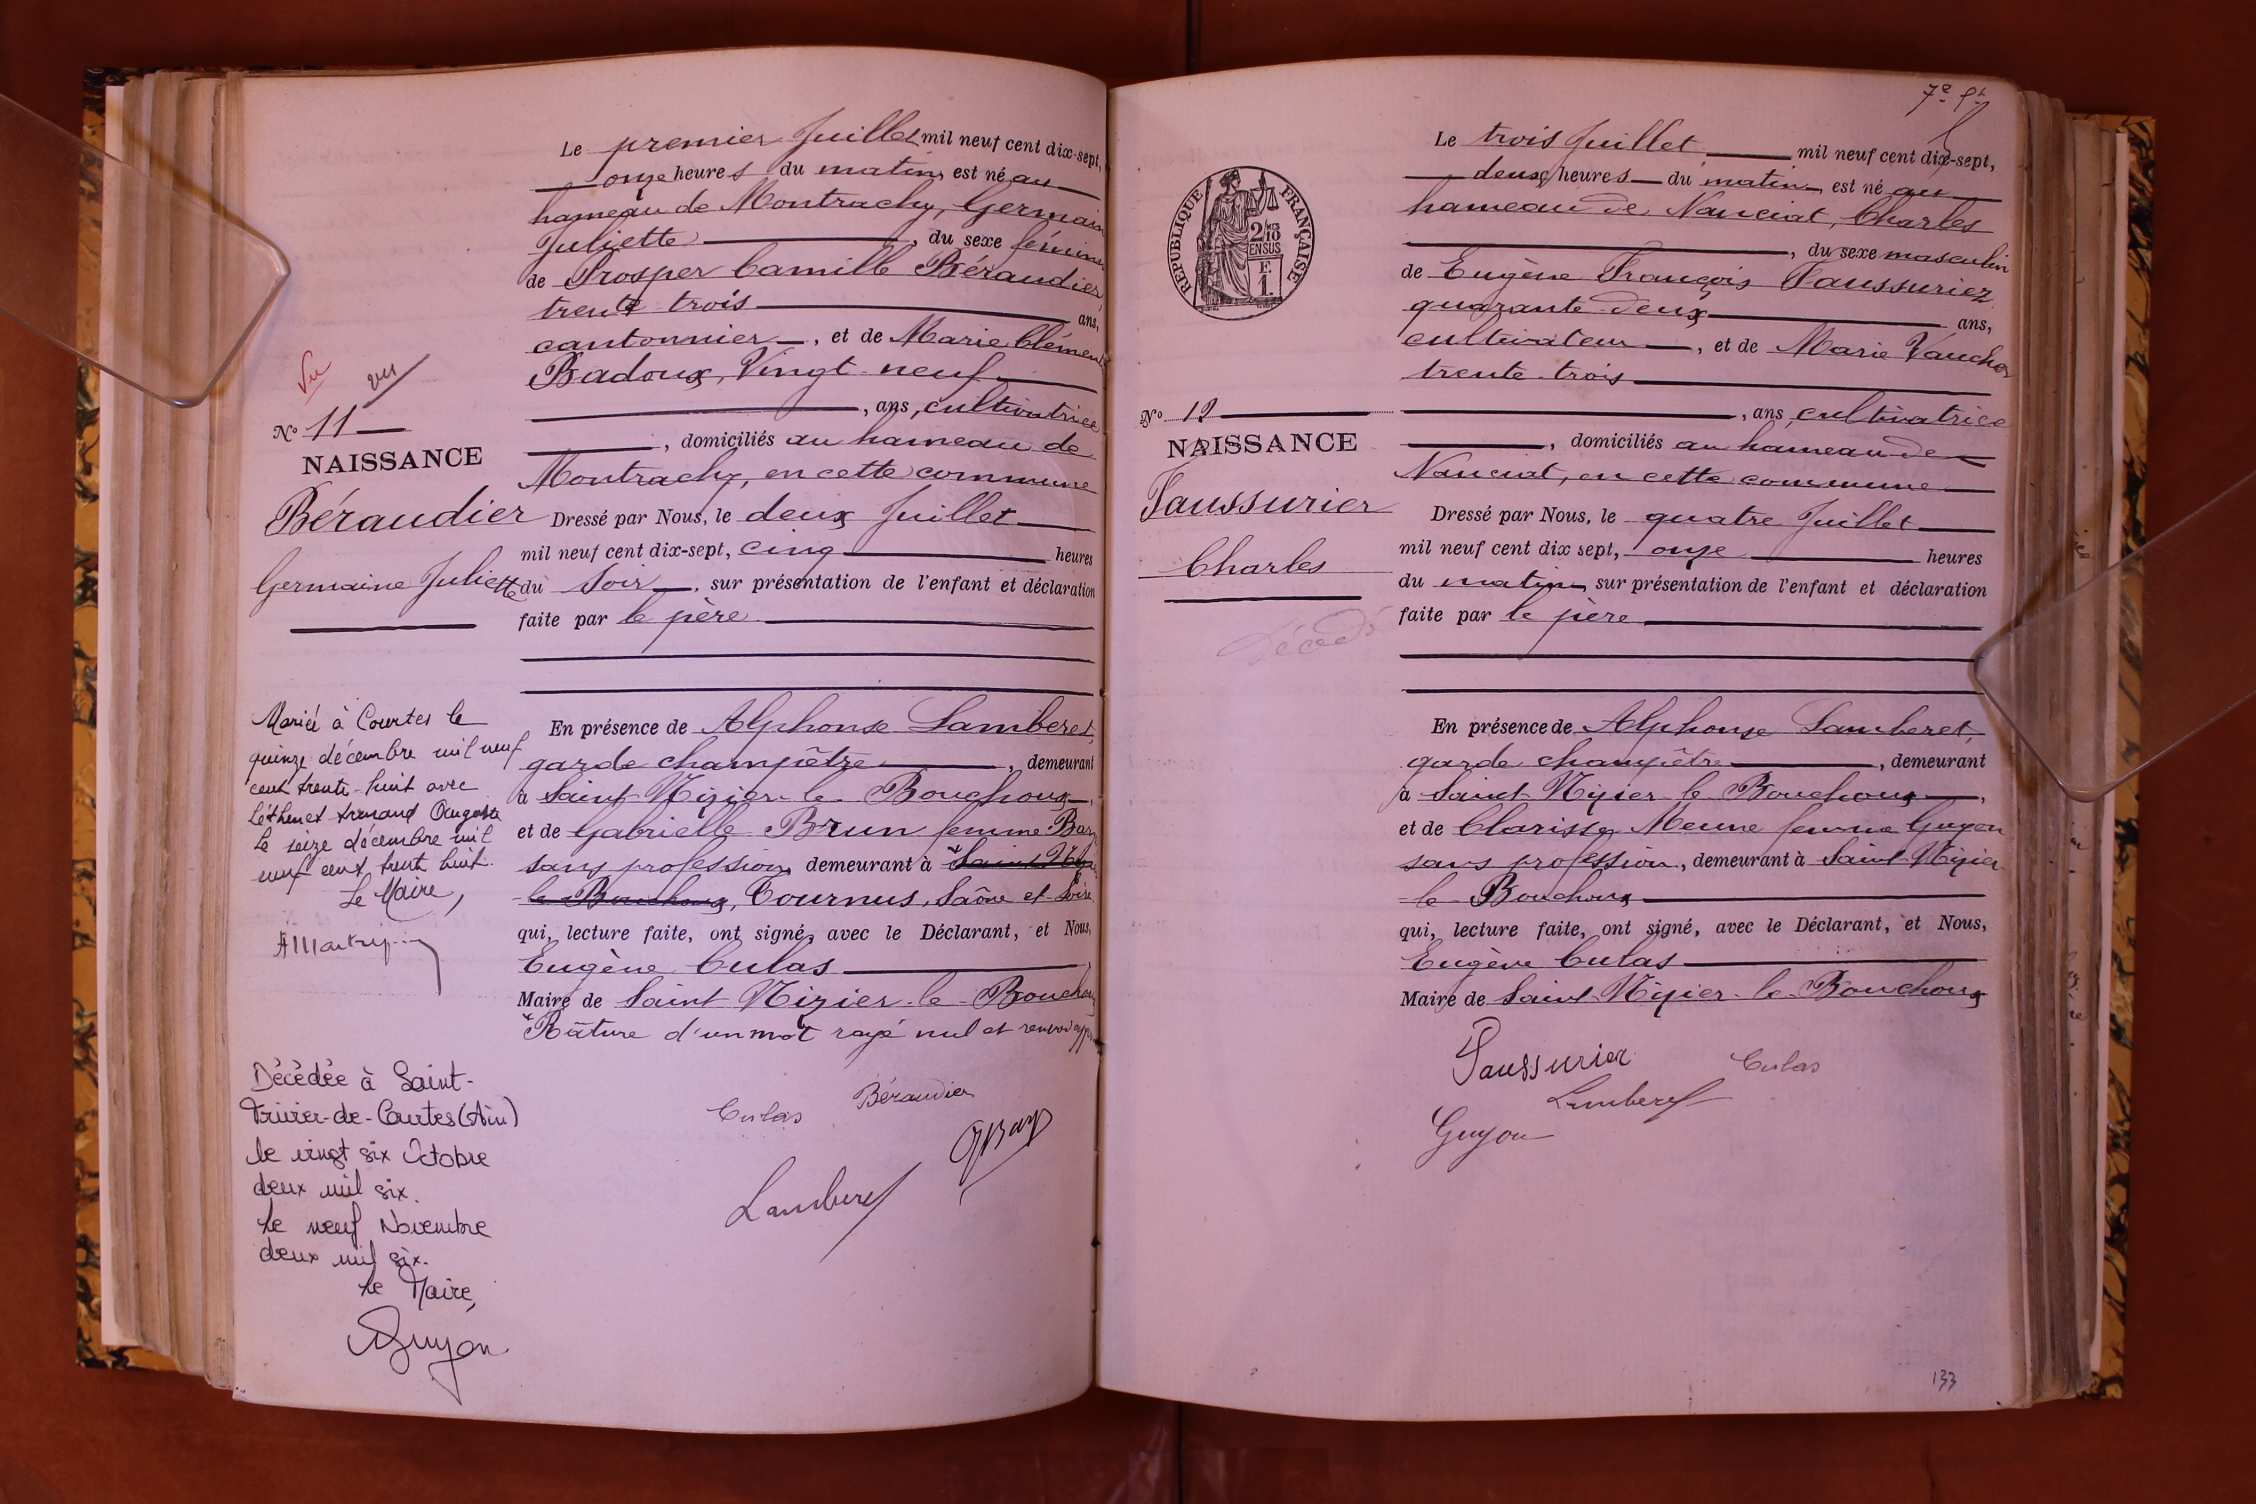 Le premier Juillet mil neuf cent dix-sept,
onze heures du matin est né au
hameau de Montrachy, Germaine
Juliette, du sexe féminin
de Prosper Camille Béraudier,
trente trois ans,
cantonnier, et de Marie Clémence
Badoux, Vingt neuf
, ans, cultivatrice
, domiciliés au hameau de
Montrachy, en cette commune
Vu
vu
N° 11
NAISSANCE
Béraudier
Germaine Juliette
Dressé par Nous, le deux Juillet
mil neuf cent dix-sept, cinq heures
du soir, sur présentation de l'enfant et déclaration
faite par le père
En présence de Alphonse Lamberet,
garde champêtre, demeurant
à Saint Nizier-le-Bouchoux,
et de Gabrielle Brun femme
sans profession, demeurant à *Saint
le Bouchoux, Tournus, Saône et Loire
qui, lecture faite, ont signé, avec le Déclarant, et Nous,
Eugène Culas
Maire de Saint Nizier-le-Bouchoux
*Râture d'un mot rayé nul et renvoi
Culas
Béraudier
Lamberet
Mariée à Courtes le
quinze décembre mil neuf
cent trente-huit avec
Auguste
Le seize décembre mil
neuf cent trente huit.
Le Maire,
Décédée à Saint-
Trivier-de-Courtes (Ain)
le vingt six Octobre
deux mil six.
Le neuf Novembre
deux mil six.
Le Maire,
Guyon
7e
RÉPUBLIQUE FRANÇAISE
2/10
EN SUS
F.
1.
Le trois Juillet mil neuf cent dix-sept,
deux heures du matin, est né au
hameau de Nanciat, Charles
, du sexe masculin
de Eugène François Faussurier
quarante deux ans,
cultivateur, et de Marie Vaucher
trente-trois
, ans, cultivatrice
, domiciliés au hameau de
Nanciat, en cette commune
N° 12
NAISSANCE
Faussurier
Charles
Décédé
Dressé par Nous, le quatre Juillet
mil neuf cent dix sept, onze heures
du matin, sur présentation de l'enfant et déclaration
faite par le père
En présence de Alphonse Lamberet,
garde champêtre, demeurant
à Saint Nizier le Bouchoux,
et de Clarisse Meune femme Guyon
sans profession, demeurant à Saint-Nizier
le Bouchoux
qui, lecture faite, ont signé, avec le Déclarant, et Nous,
Eugène Culas
Maire de Saint-Nizier-le-Bouchoux
Faussurier
Culas
Lamberet
Guyon
133